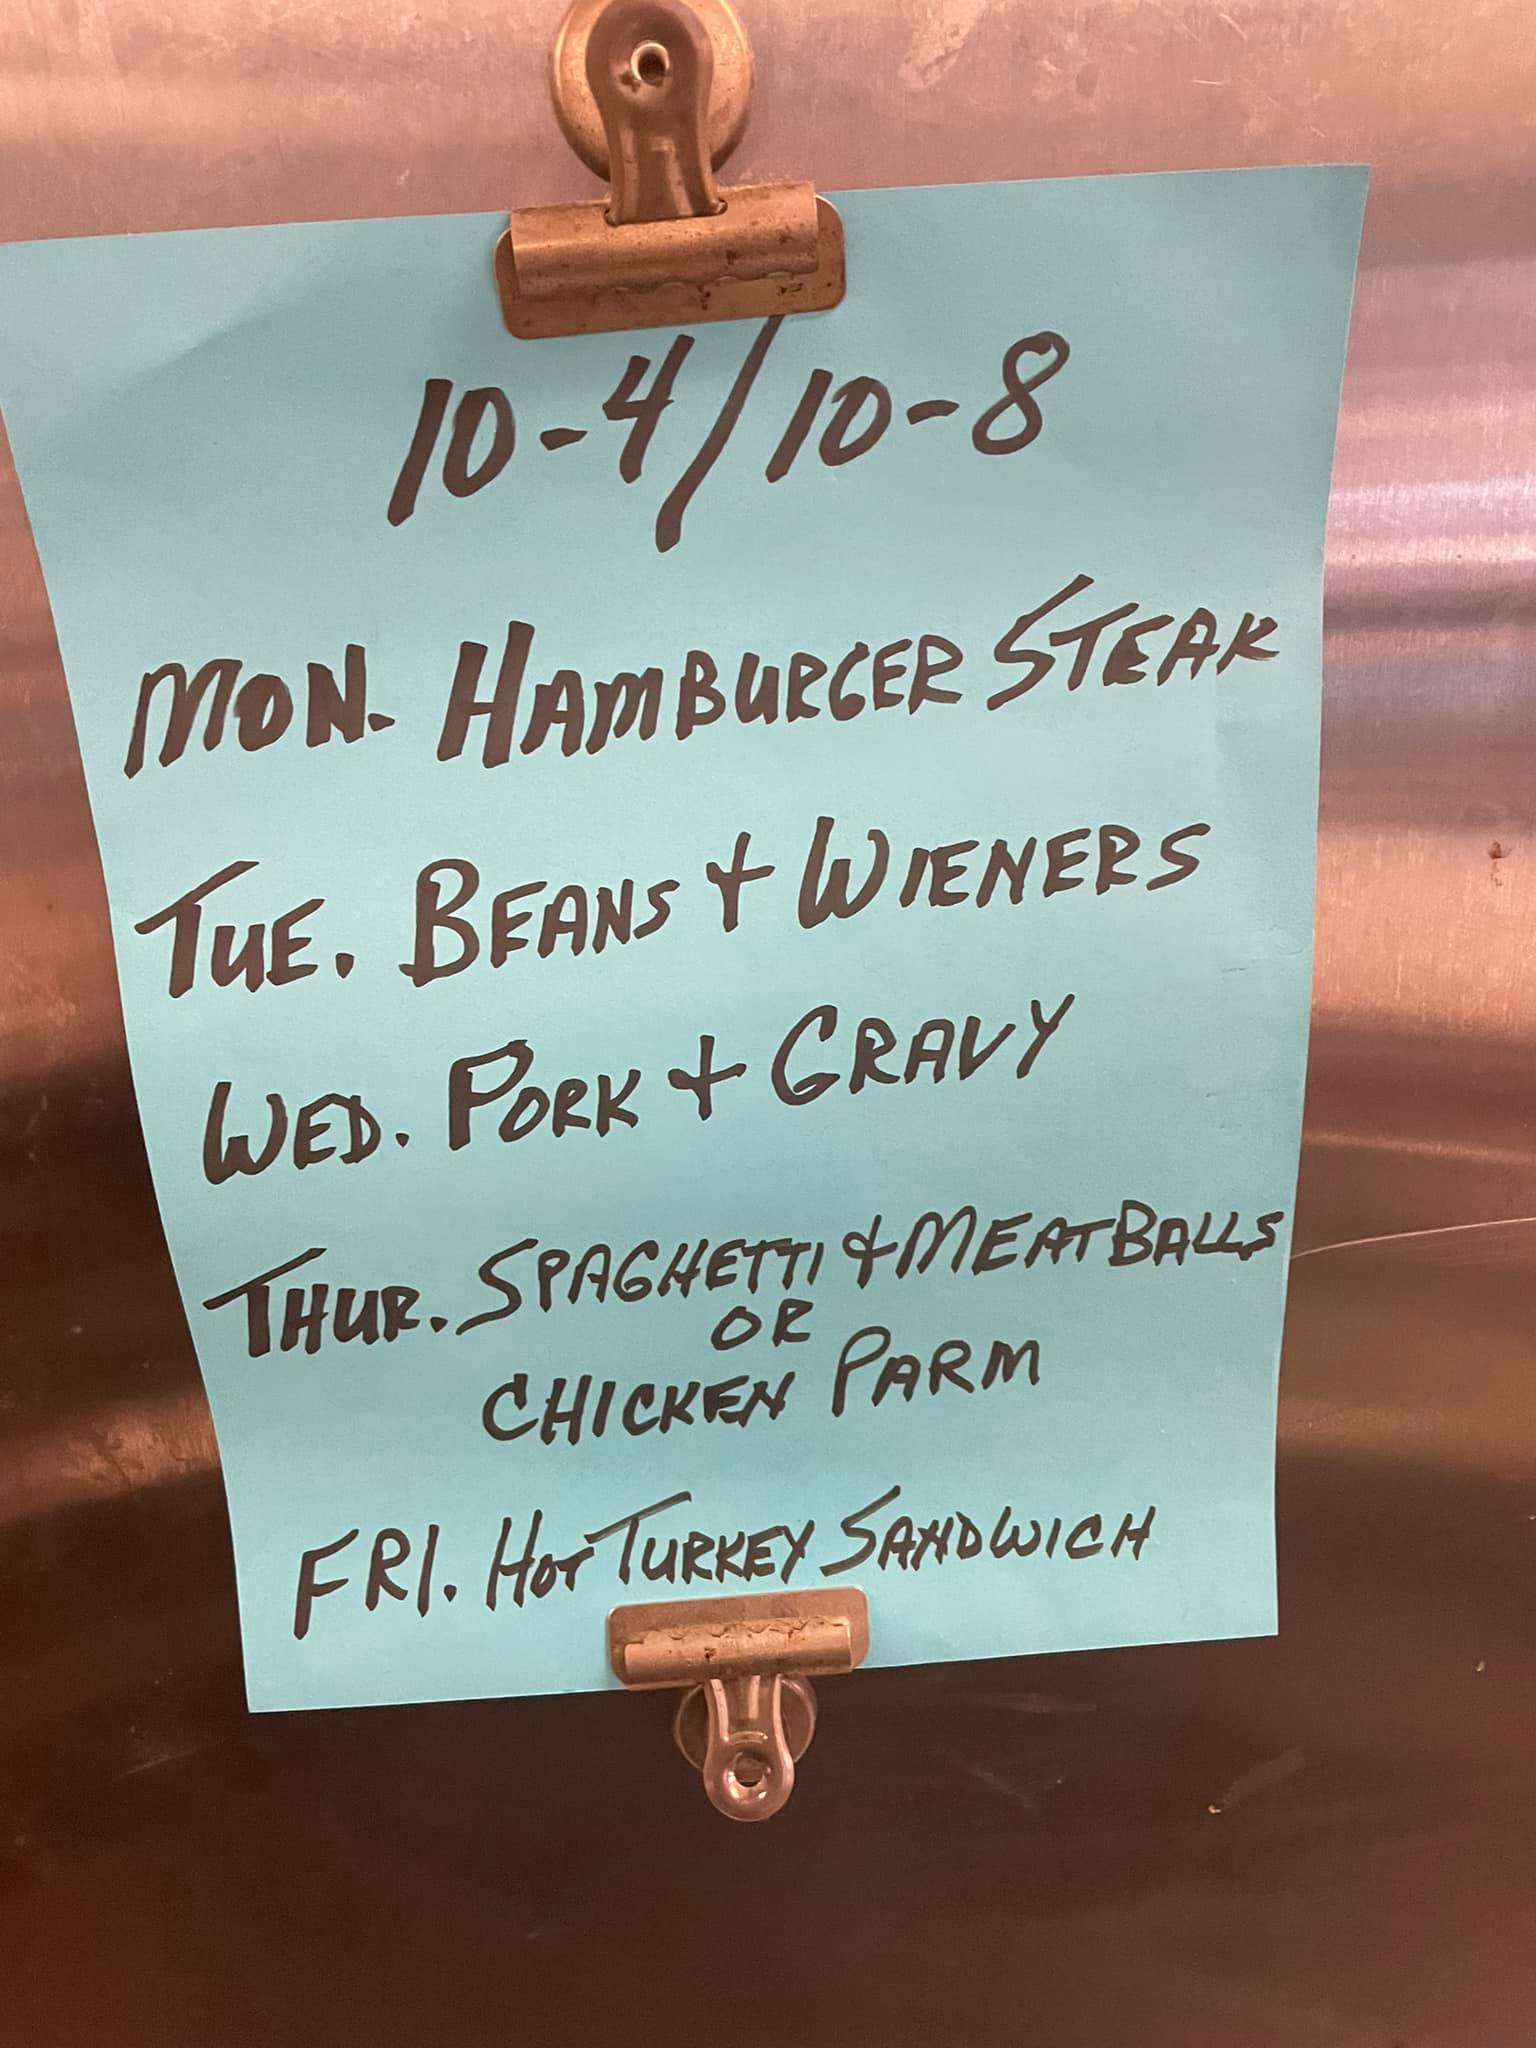 10-4/10-8
MON. HAMBURGER STEAK
TUE. BEANS + WIENERS
WED. PORK + GRAVY
THUR. SPAGHETTI & MEATBALLS
OR
CHICKEN PARM
FRI. HOT TURKEY SANDWICH